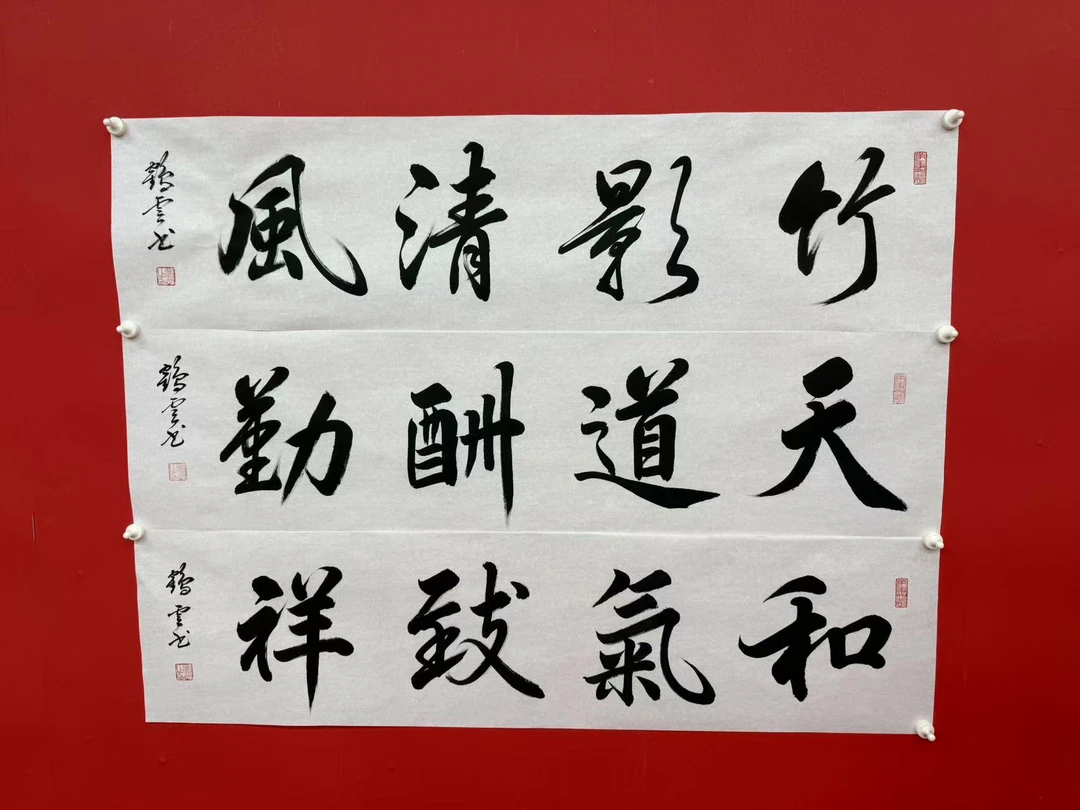 竹影清風
鶴雲书
天道酬勤
鶴雲书
和氣致祥
鶴雲书